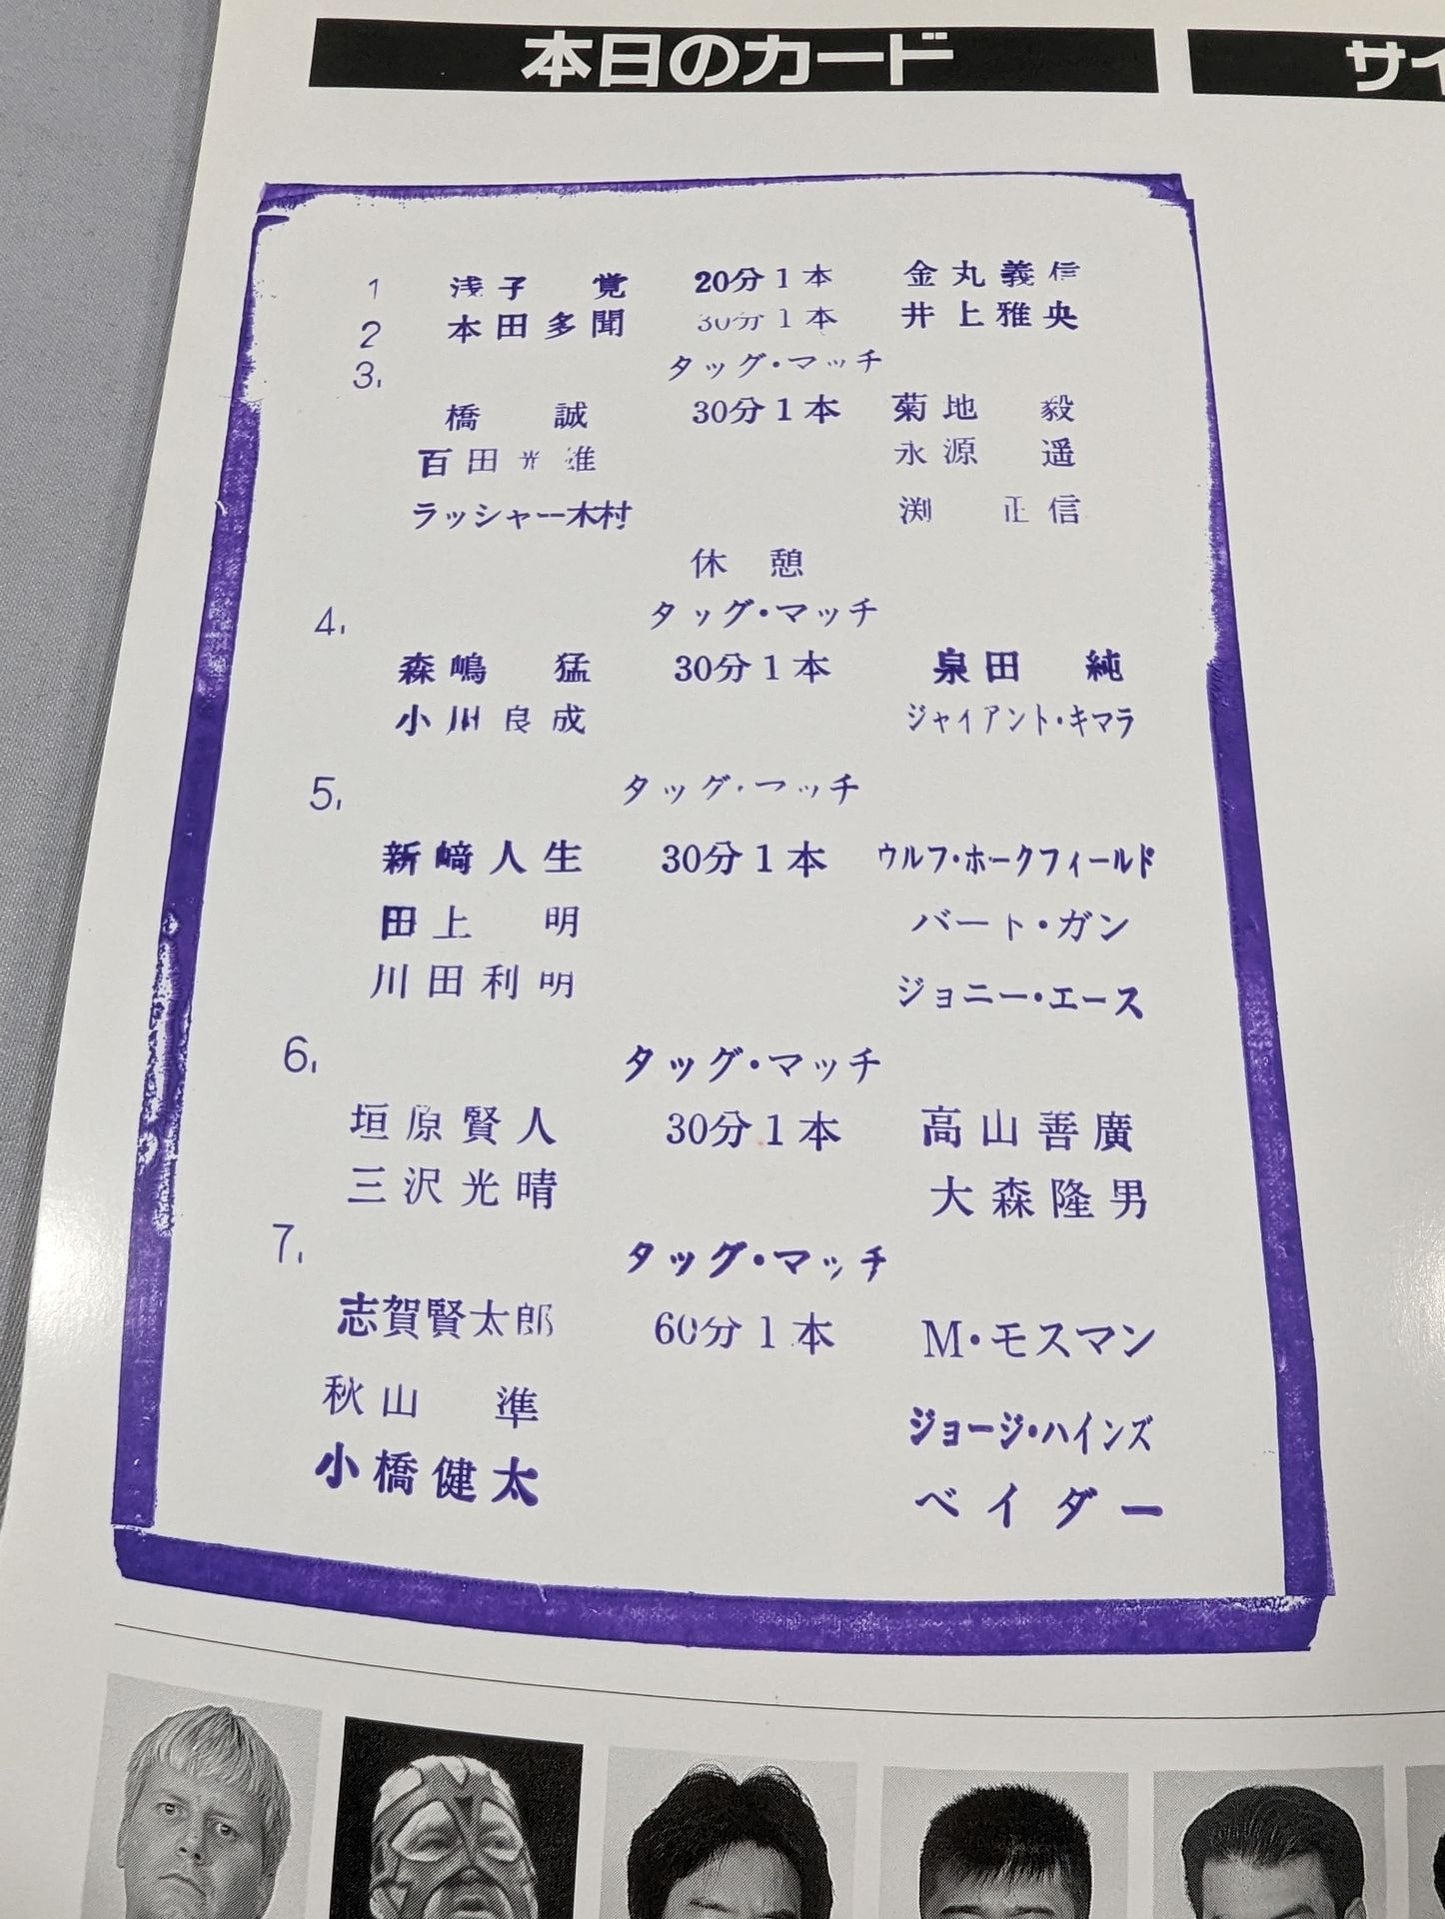 本日のカード
サイ
1 浅子 覚 20分1本 金丸義信
2 本田多聞 30分1本 井上雅央
3. タッグ・マッチ
橋 誠 30分1本 菊地 毅
百田光雄 永源 遥
ラッシャー木村 渕 正信
休憩
4. タッグ・マッチ
森嶋 猛 30分1本 泉田 純
小川良成 ジャイアント・キマラ
5. タッグ・マッチ
新﨑人生 30分1本 ウルフ・ホークフィールド
田上 明 バート・ガン
川田利明 ジョニー・エース
6. タッグ・マッチ
垣原賢人 30分1本 高山善廣
三沢光晴 大森隆男
7. タッグ・マッチ
志賀賢太郎 60分1本 M・モスマン
秋山 準 ジョージ・ハインズ
小橋健太 ベイダー